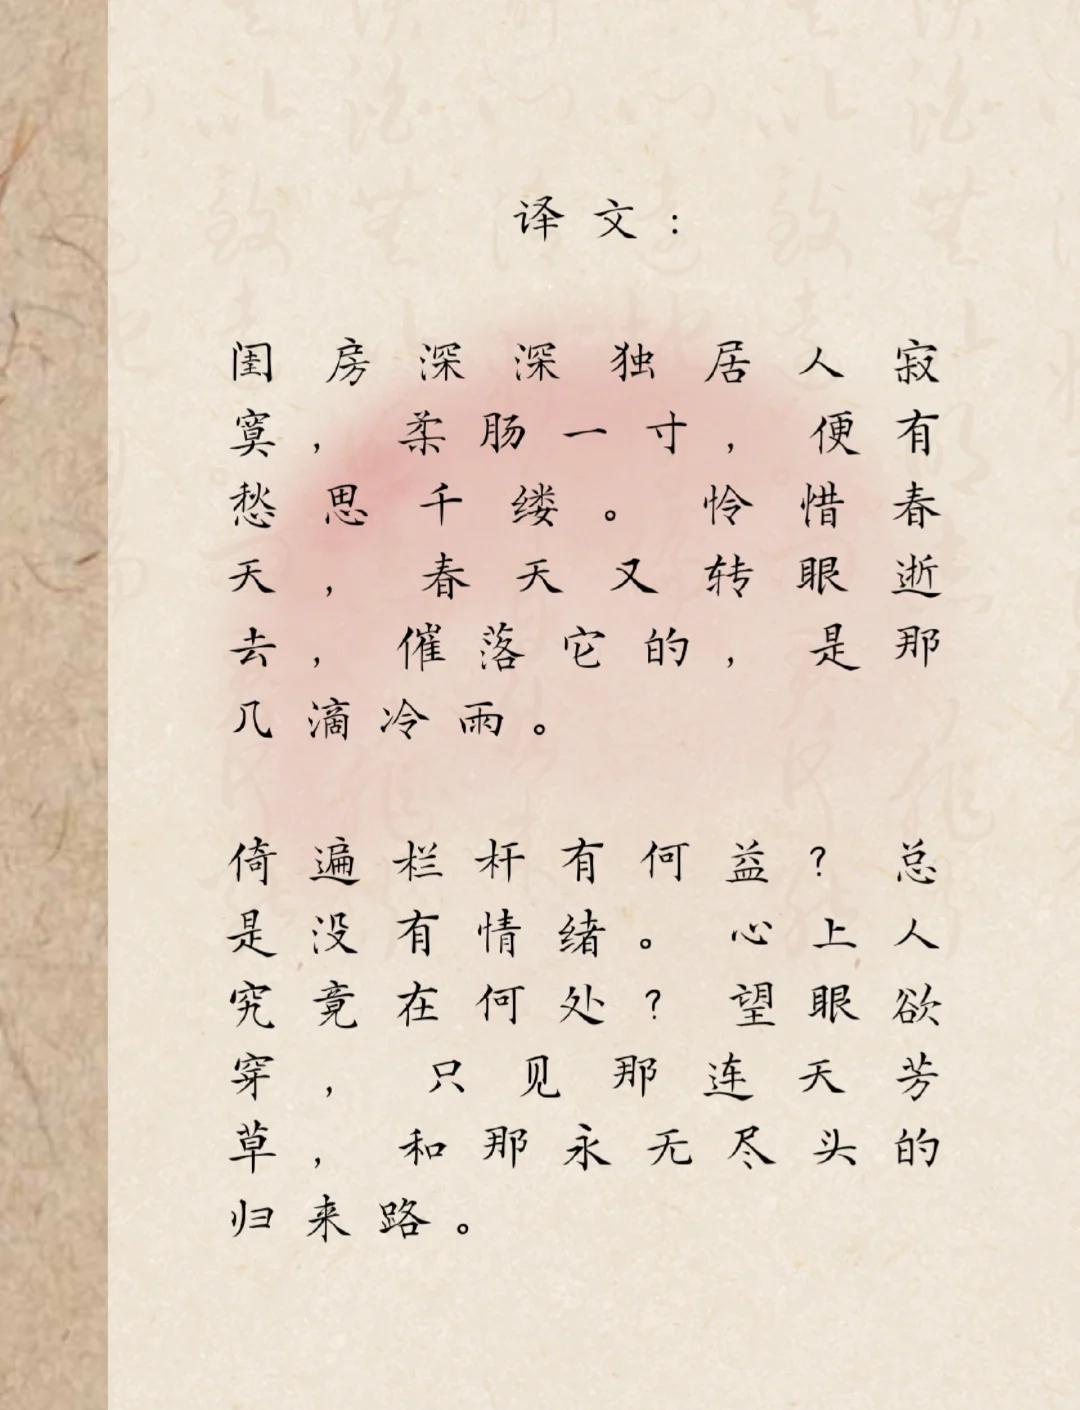 译文：
闺房深深独居人寂
寞，柔肠一寸，便有
愁思千缕。怜惜春
天，春天又转眼逝
去，催落它的，是那
几滴冷雨。
倚遍栏杆有何益？总
是没有情绪。心上人
究竟在何处？望眼欲
穿，只见那连天芳
草，和那永无尽头的
归来路。